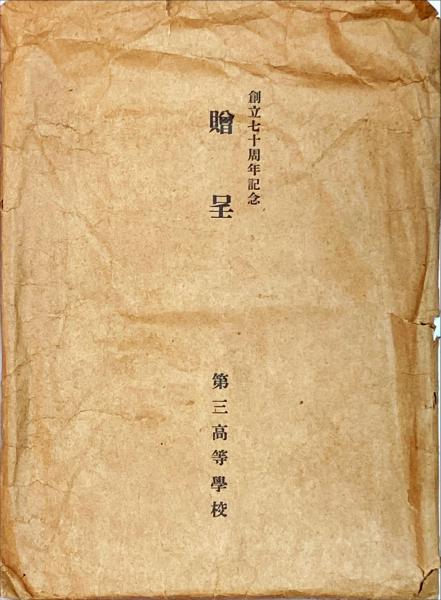 創立七十周年記念
贈呈
第三高等學校